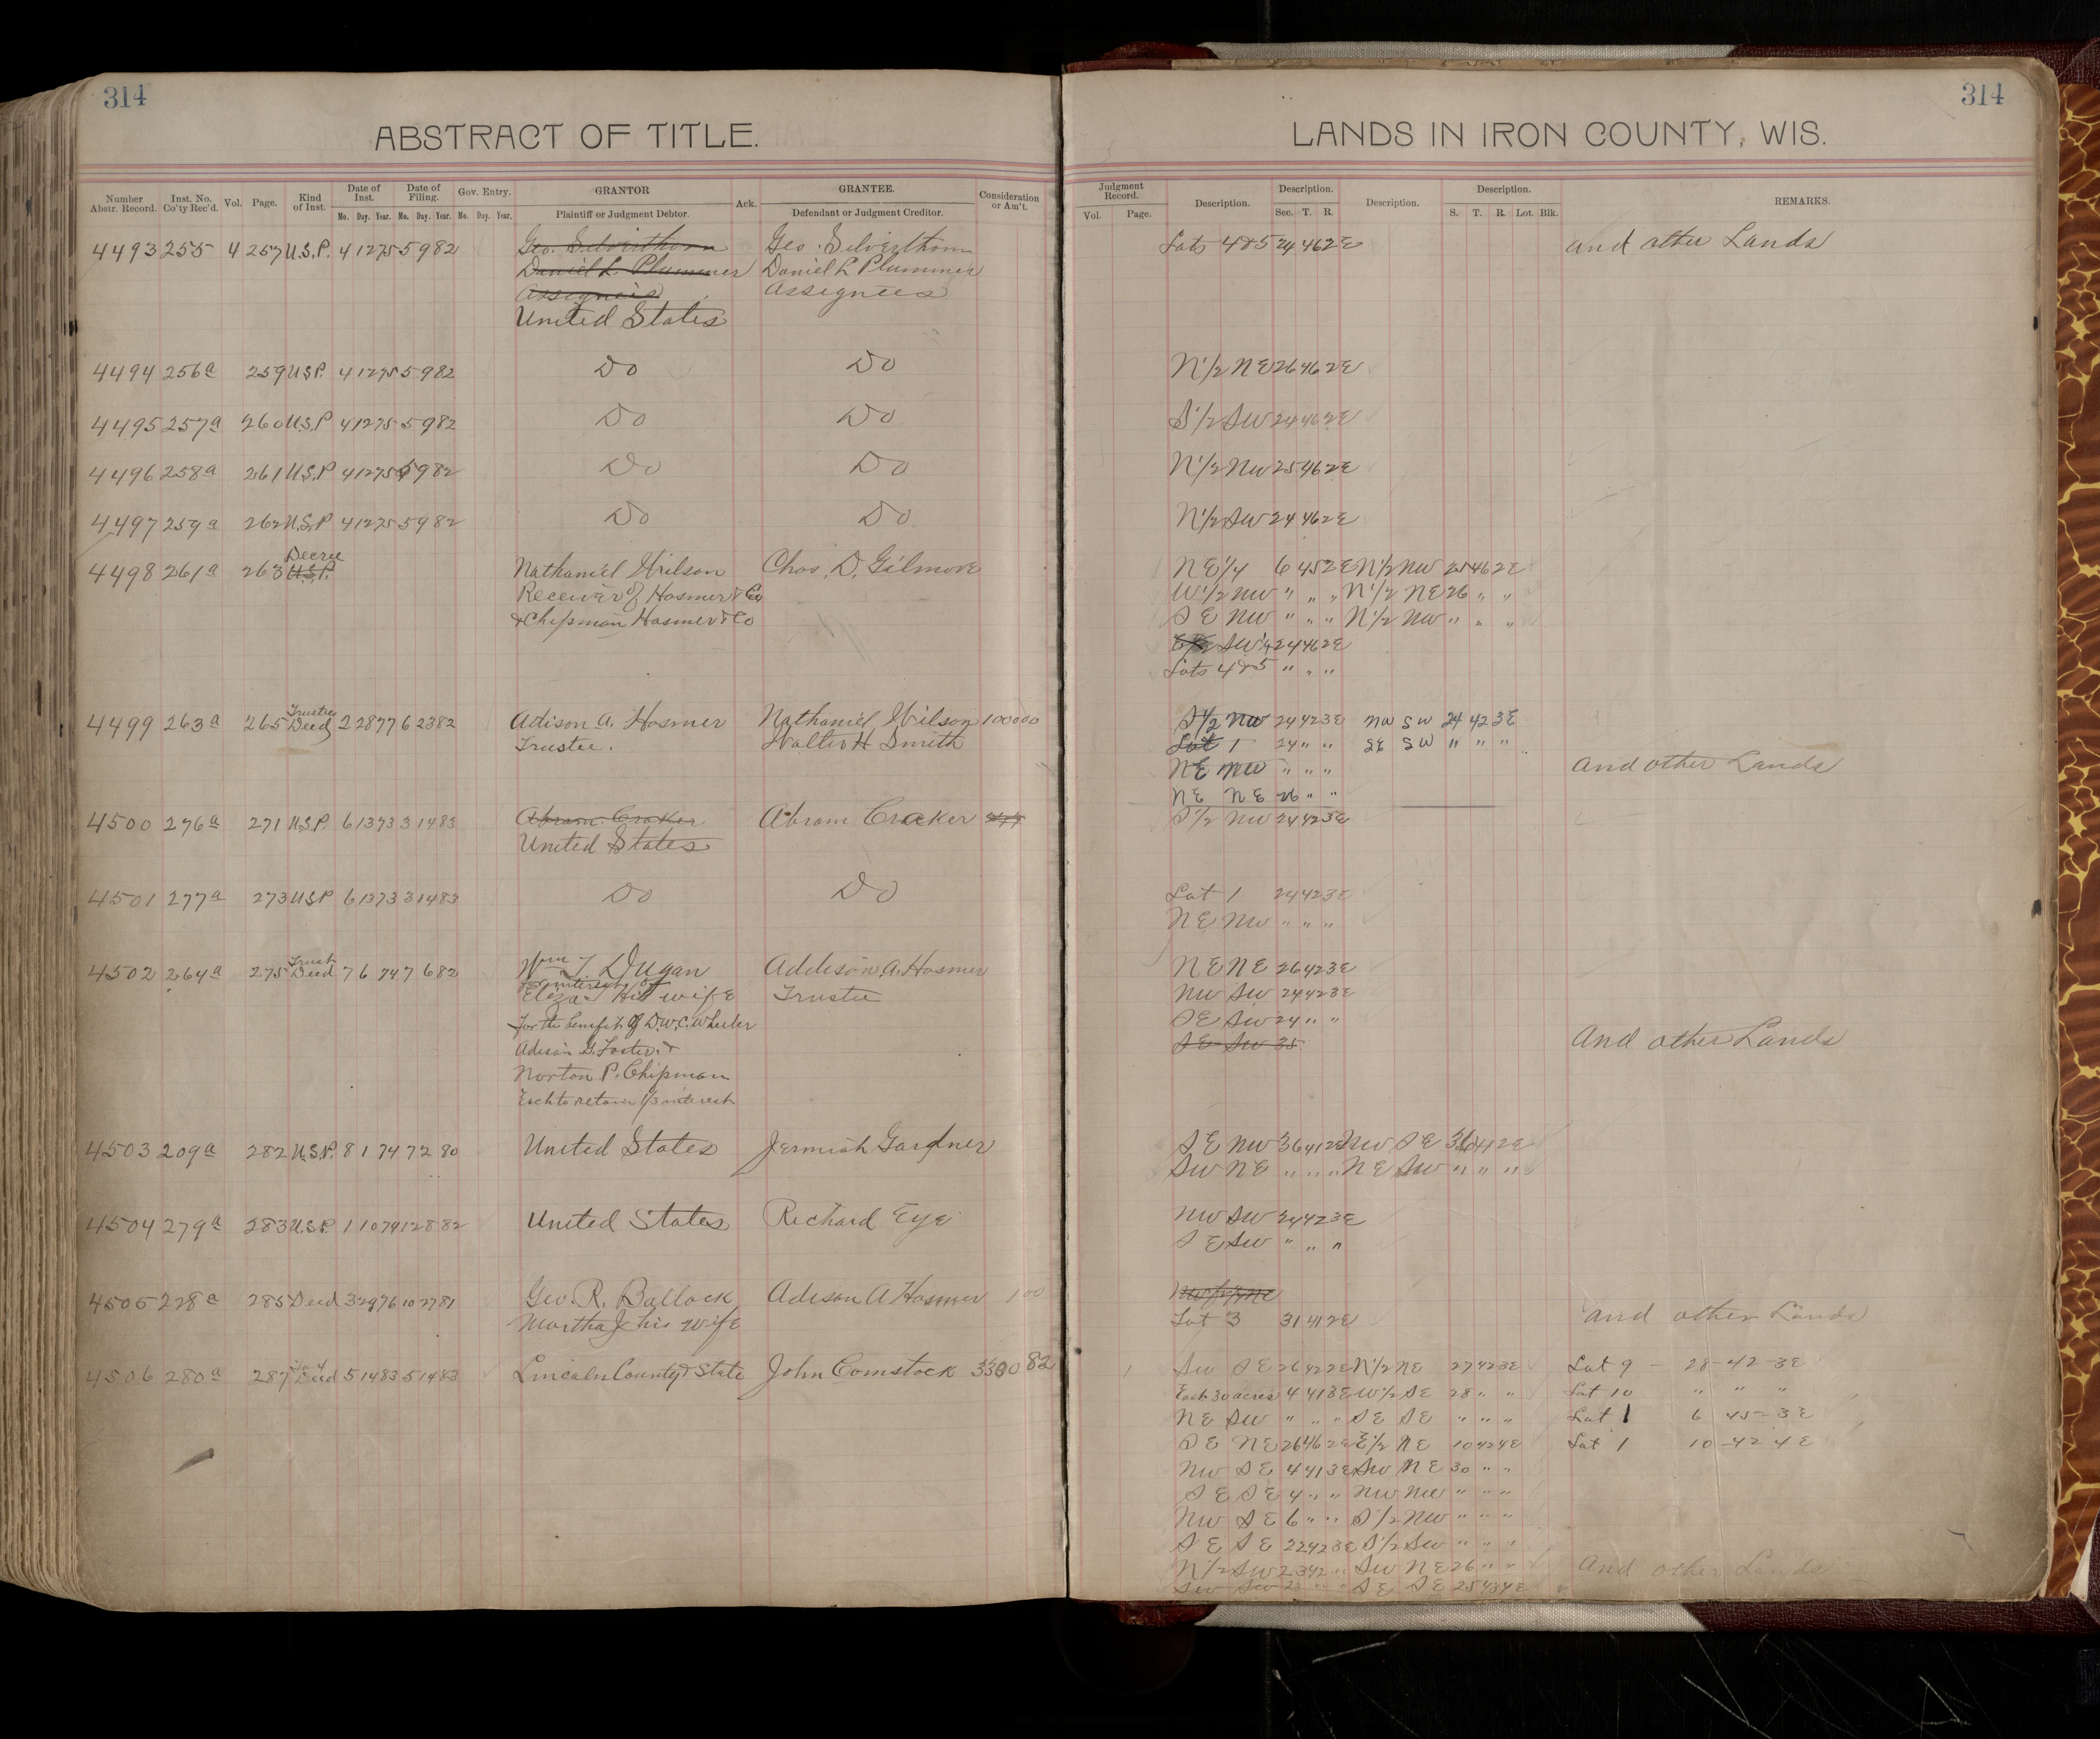 314
ABSTRACT OF TITLE.
Number Abstr. Record. Inst. No. Co'ty Rec'd. Vol. Page. Kind of Inst. Date of Inst. Mo. Day. Year. Date of Filing. Mo. Day. Year. Gov. Entry. Mo. Day. Year. GRANTOR Plaintiff or Judgment Debtor. Ack. GRANTEE. Defendant or Judgment Creditor. Consideration or Am't.
4493 255 4 257 U.S.P. 4 12 75 5 9 82 Geo. Silverthorn Geo. Silverthorn
Daniel L. Plummer Daniel L Plummer
Assignees Assignees
United States
4494 256a 259 U.S.P. 4 12 75 5 9 82 Do Do
4495 257a 260 U.S.P 4 12 75 5 9 82 Do Do
4496 258a 261 U.S.P 4 12 75 5 9 82 Do Do
4497 259a 262 U.S.P 4 12 75 5 9 82 Do Do
Decree
4498 261a 263 U.S.P. Nathaniel Wilson Chas. D. Gilmore
Receiver of Hosmer & Co
& Chipman Hosmer & Co
Trustees
4499 263a 265 Deed 2 28 77 6 23 82 Adison A. Hosmer Nathaniel Wilson 1000 00
Trustee. Walter H Smith
4500 276a 271 U.S.P. 6 13 73 3 14 83 Abram Croker Abram Cracker
United States
4501 277a 273 U.S.P 6 13 73 3 14 83 Do Do
Trust
4502 264a 275 Deed 7 6 74 7 6 82 Wm T. Dugan Addison A. Hosmer
Eliza his wife Trustee
for the benefit of D.W.C. Wheeler
Adison G. Foster &
Norton P. Chipman
Each to retain 1/3 interest
4503 209a 282 U.S.P. 8 1 74 7 2 80 United States Jermiah Gardner
4504 279a 283 U.S.P. 1 10 74 12 8 82 United States Richard Eye
4505 228a 285 Deed 3 29 76 10 27 81 Geo. R. Ballock Adison A Hosmer 1 00
Martha J his wife
4506 280a 287 Deed 5 14 83 5 14 83 Lincoln County & State John Comstock 3300 82
314
LANDS IN IRON COUNTY, WIS.
Judgment Record. Vol. Page. Description. Description. Sec. T. R. Description. Description. S. T. R. Lot. Blk. REMARKS.
Lots 4 & 5 24 46 2E and other Lands
N 1/2 NE 26 46 2E
S 1/2 SW 24 46 2E
N 1/2 NW 25 46 2E
N 1/2 SW 24 46 2E
NE 1/4 6 45 2E N 1/2 NW 25 46 2E
W 1/2 NW " " " N 1/2 NE 26 " "
SE NW " " " N 1/2 NW " " "
SW 1/4 24 46 2E
Lots 4 & 5 " " "
S 1/2 NW 24 42 3E NW SW 24 42 3E
Lot 1 24 " " SE SW " " "
NE NW " " " and other Lands
NE NE 26 " "
S 1/2 NW 24 42 3E
Lot 1 24 42 3E
NE NW " " "
NE NE 26 42 3E
NW SW 24 42 3E
SE SW 24 " "
SE SW 35 And other Lands
SE NW 36 41 2E NW SE 36 41 2E
SW NE " " " NE SW " " "
NW SW 24 42 3E
SE SW " " "
Lot 3 31 41 2E and other Lands
SW SE 26 42 2E N 1/2 NE 27 42 3E Lot 9 - 28-42-3E
East 30 acres 4 41 3E W 1/2 SE 28 " " Lot 10 " " "
NE SW " " " SE SE " " " Lot 1 6 45-3E
SE NE 26 46 2E E 1/2 NE 10 42 4E Lot 1 10-42 4E
NW SE 4 41 3E SW NE 30 " "
SE SE 4 " " NW NW " " "
NW SE 6 " " S 1/2 NW " " "
SE SE 22 42 3E S 1/2 SW " " "
N 1/2 SW 23 42 " SW NE 26 " " And other Lands
SW SW 23 " " SE SE 25 43 4E